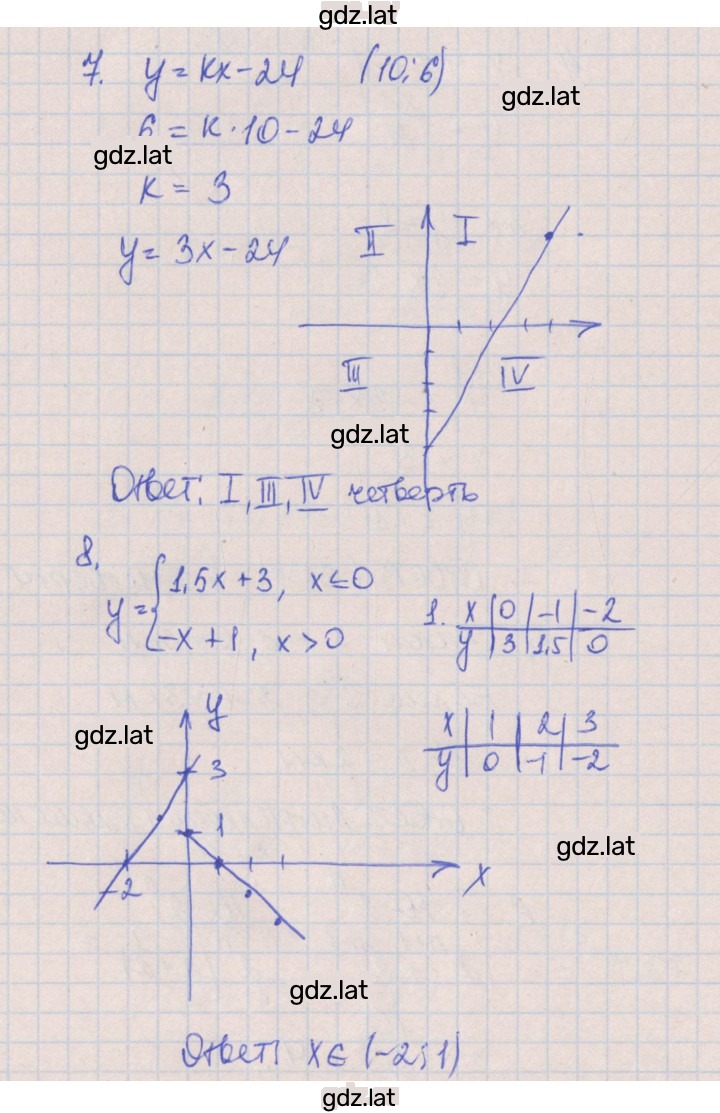 gdz.lat
7. y = kx - 24 (10; 6)
gdz.lat
6 = k · 10 - 24
gdz.lat
k = 3
y = 3x - 24
II I
III IV
gdz.lat
Ответ: I, III, IV четверть
8.
y = { 1,5x + 3, x ≤ 0
-x + 1, x > 0
1. x | 0 | -1 | -2
y | 3 | 1,5 | 0
x | 1 | 2 | 3
y | 0 | -1 | -2
y
gdz.lat
3
1
gdz.lat
-2
x
gdz.lat
Ответ: x ∈ (-2; 1)
gdz.lat